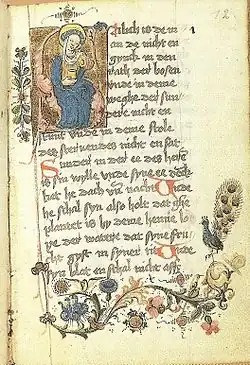 12
alich is de m
an de nicht en
gynck in den
rath der bosen
vnde in deme
weghe der sun
dere nicht en
stunt vnde in deme stole
des steruendes nicht en sat
Sunder in der ee des heren
is syn wylle vnde syne ee denck
het he dach vnde nacht Vnde
he schal syn also holt dat ghe
plantet is by deme henne lo
pe der watere dat syne fru
cht gyft in syner tid Vnde
syn blat en schal nicht aff